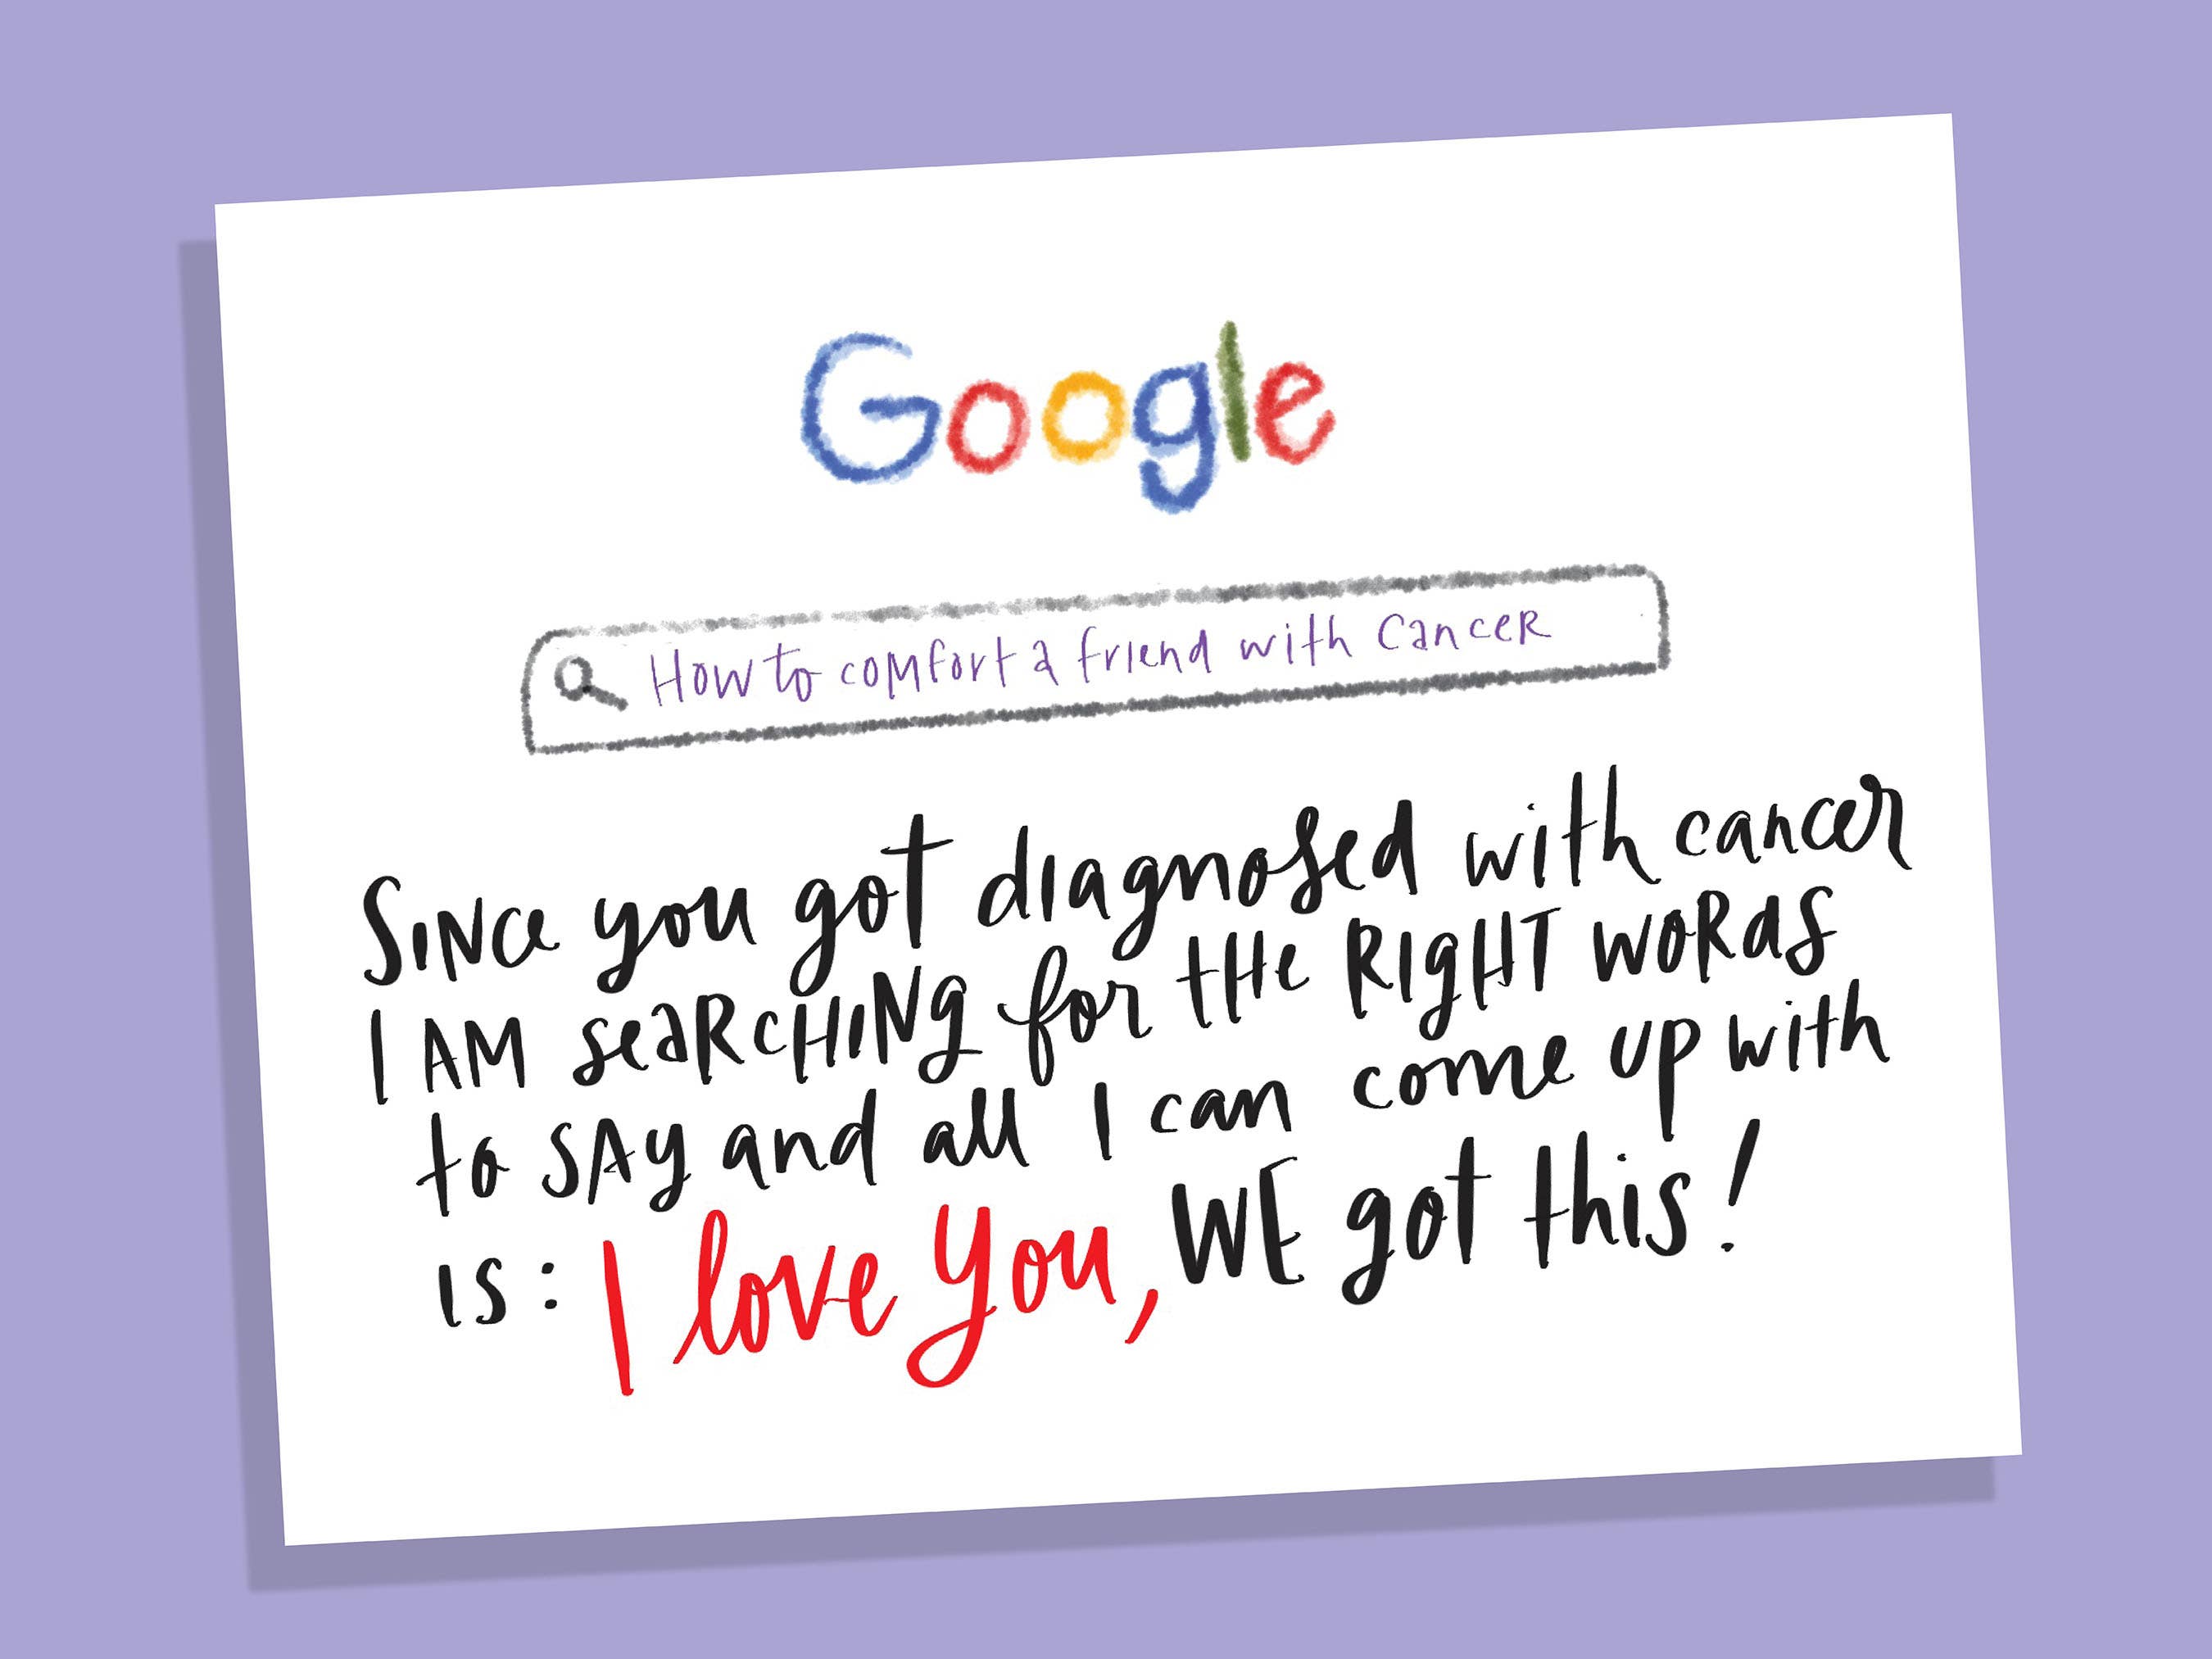 Google
How to comfort a friend with cancer
Since you got diagnosed with cancer
I AM seaRcHiNg for tHe RIgHT woRds
to sAy and all I can come up with
is: I love you, WE got this!